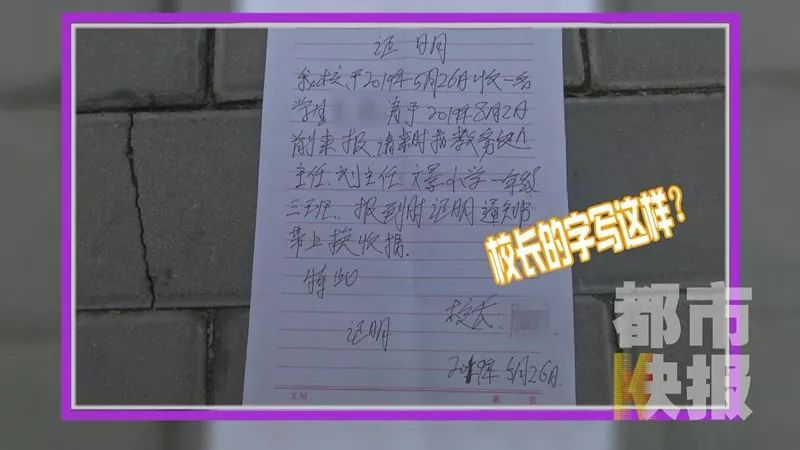 证明
我校于2019年5月26日收一名
学生 请于2019年8月2日
前来报,请来时找教务处
主任.刘主任.文景小学一年级
三班.报到时证明通知书
带上换收据.
特此
证明
校长.
2019年5月26日.
XM
校长的字写这样?
都市
快报